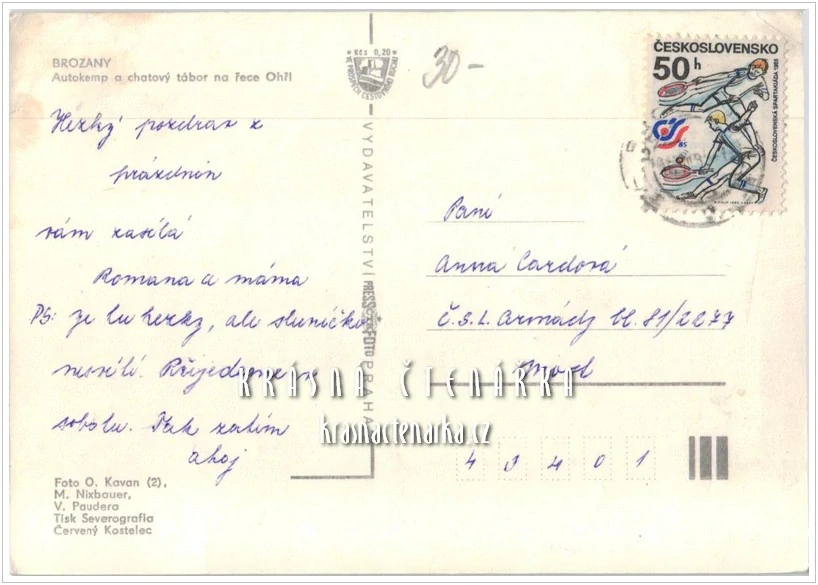 BROZANY
Autokemp a chatový tábor na řece Ohři
Kčs 0,20
VE PROSPĚCH CESTOVNÍHO RUCHU
30-
ČESKOSLOVENSKO
50 h
ČESKOSLOVENSKÁ SPARTAKIÁDA 1985
ČS 85
Hezký pozdrav z
prázdnin
vám zasílá
Romana a máma
PS: je tu hezky, ale sluníčko
nesvítí. Přijedeme v
sobotu. Tak zatím
ahoj
VYDAVATELSTVÍ PRESSFOTO PRAHA
Paní
Anna Cardová
Č.S.L. Armády bl. 81/2677
Most
KRÁSNÁ ČTENÁRKA
krasnactenarka.cz
43401
Foto O. Kavan (2),
M. Nixbauer,
V. Paudera
Tisk Severografia
Červený Kostelec